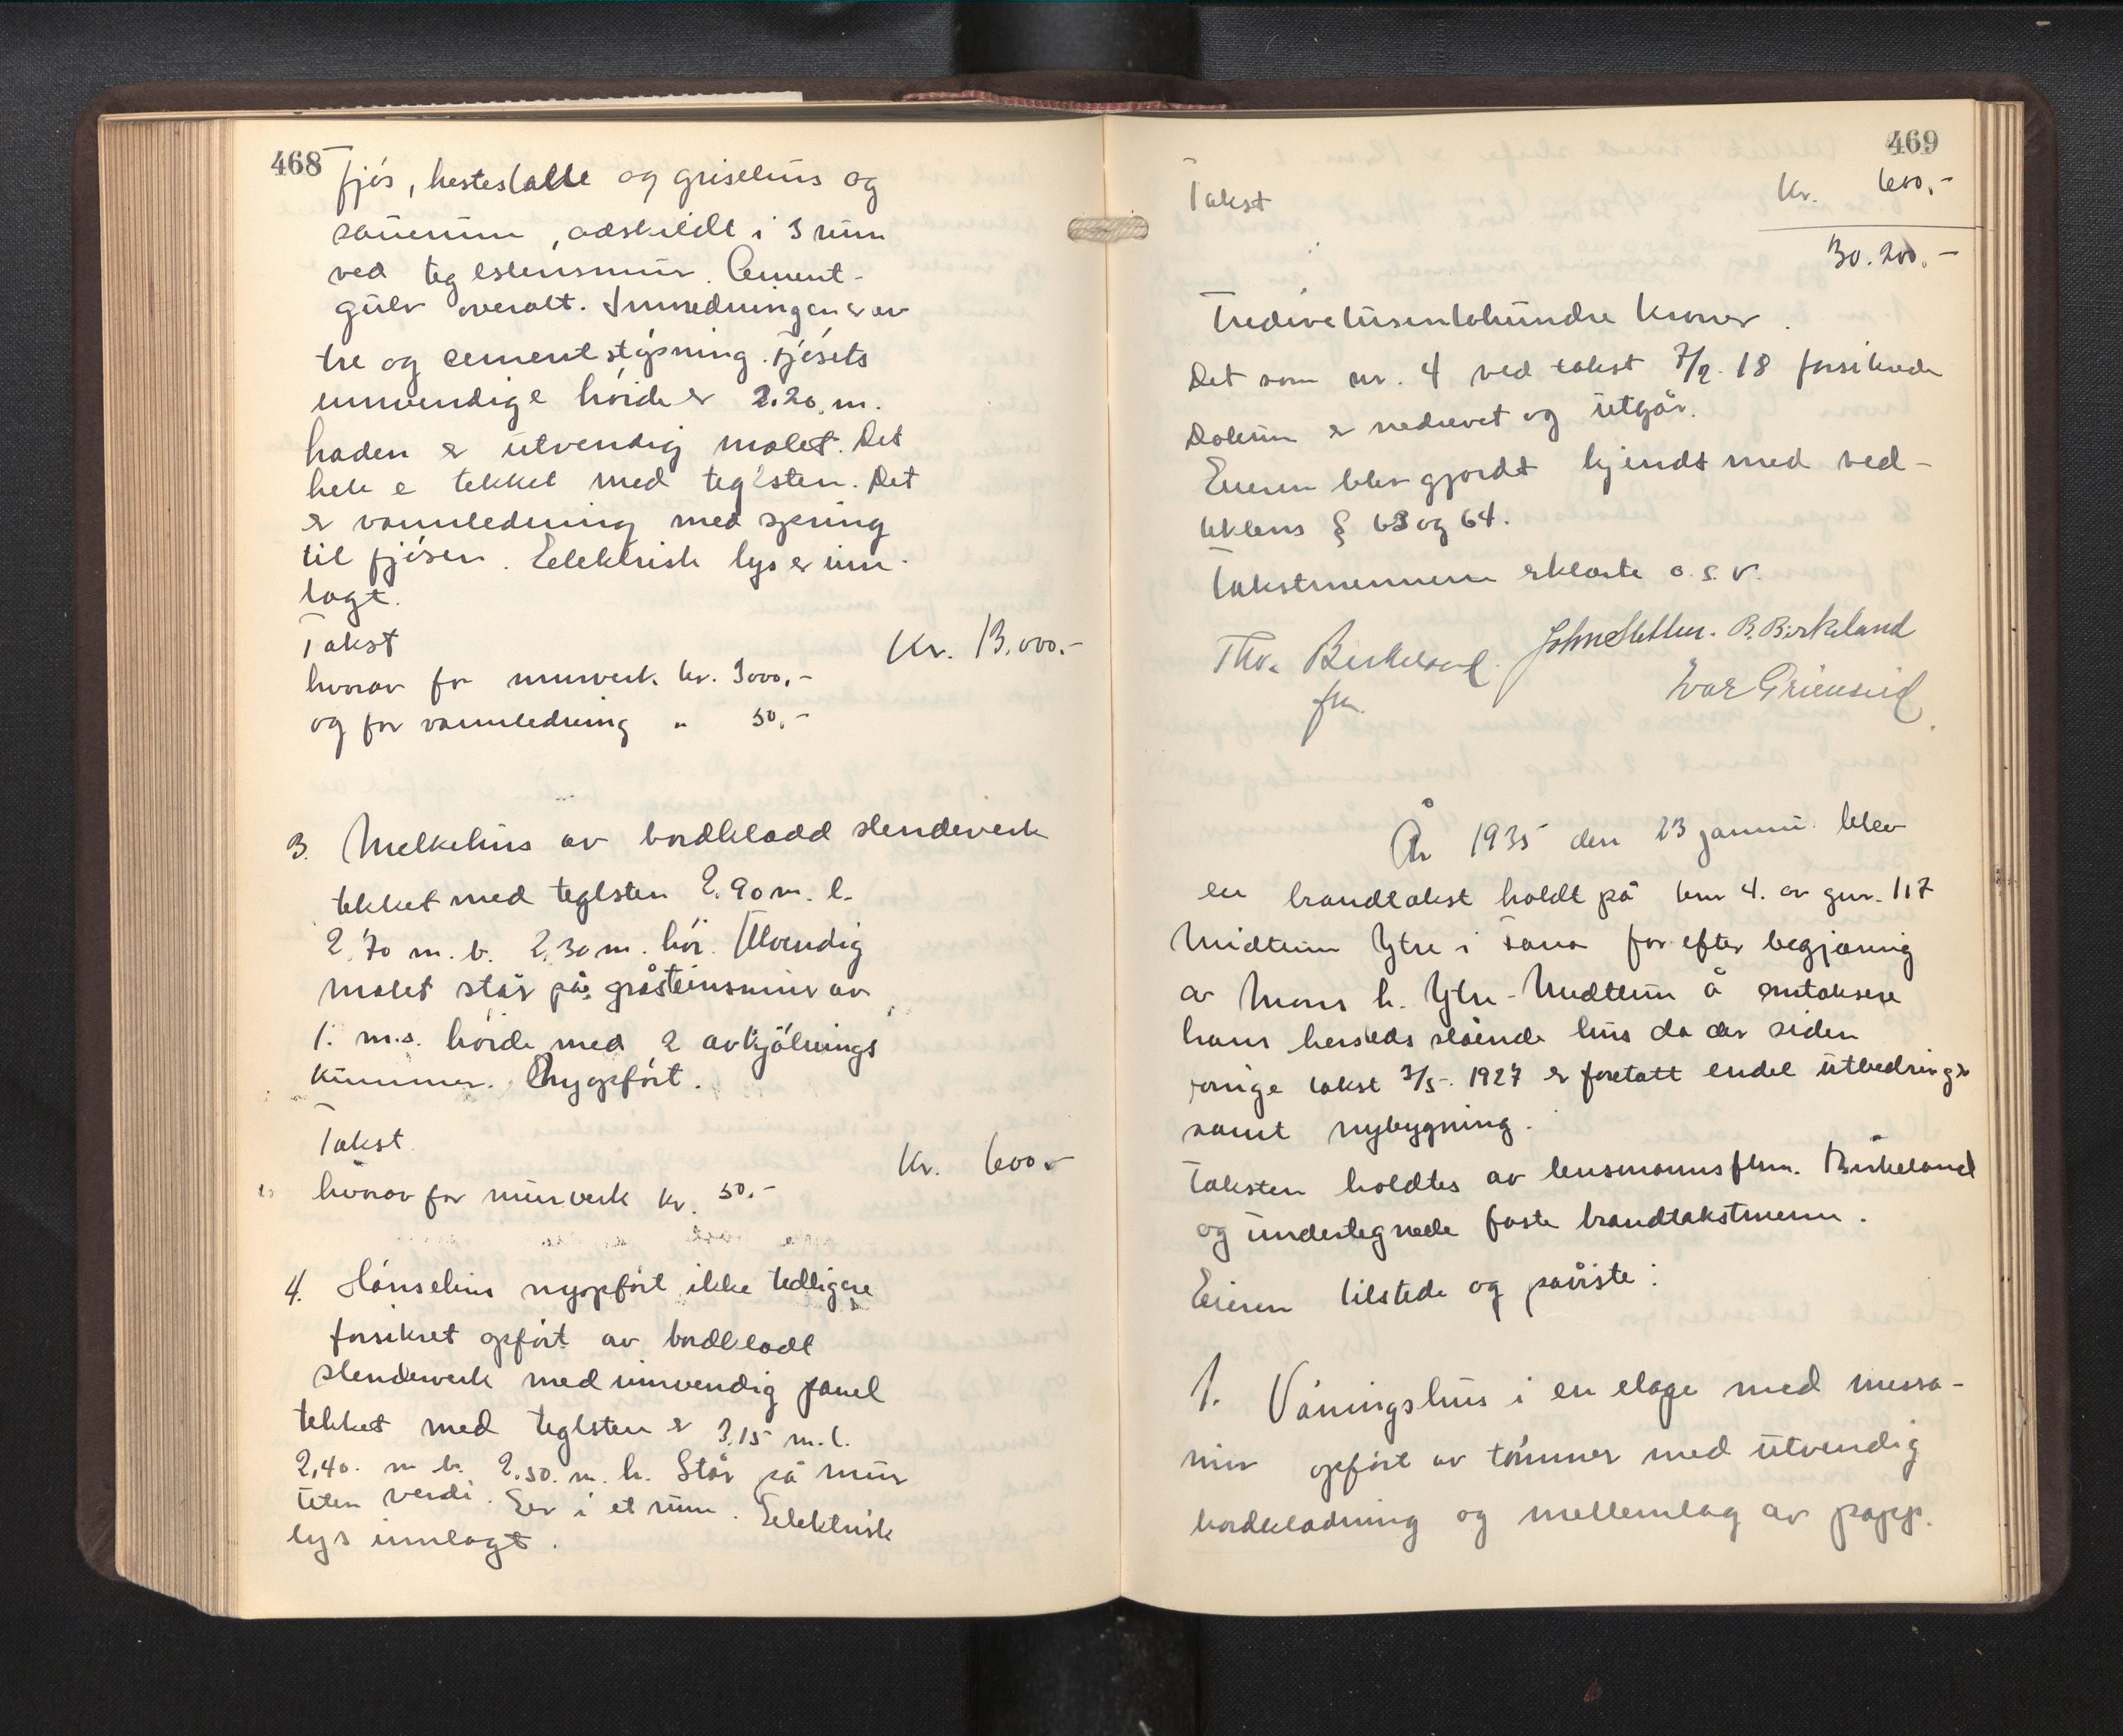 468
fjøs, hestestalle og grisehus og
sauerum, adskildt i 3 rum
ved teglstensmur. Cement-
gulv overalt. Innredningen er av
tre og cementstøpning. Fjøsets
innvendige høide er 2.20 m.
laden er utvendig malet. Det
hele e tekket med teglsten. Det
er vannledning med spring
til fjøsen. Elektrisk lys er inn-
lagt.
Takst Kr. 13.000.-
hvorav for murverk kr. 3000,-
og for vannledning " 50,-
3. Melkehus av bordkladd stenderverk
tekket med teglsten 2.90 m. l.
2.70 m. b. 2.30 m. høi. Utvendig
malet står på gråsteinsmur av
1. m.s. høide med 2 avkjølnings
kummer. Nyopført.
Takst Kr. 600.-
hvorav for murverk kr. 50.-
4. Hønsehus nyopført ikke tidligere
forsikret opført av bordkladt
stenderverk med innvendig panel
tekket med teglsten er 3,15 m. l.
2,40. m b. 2.50. m. h. Står på mur
uten verdi. Er i et rum. Elektrisk
lys innlagt.
469
Takst Kr. 600.-
30.200.-
Tredivetusentohundre kroner.
Det som nr. 4 ved takst 7/2. 18 forsikrede
er nedrevet og utgår.
Eieren blev gjordt kjendt med ved-
tektens § 63 og 64.
Takstmennene erklærte o.s.v.
Ths. Birkeland John Sletten. B. Birkeland
fm. Ivar Grimseid
År 1935 den 23 januar blev
en brandtakst holdt på bnr 4. av gnr. 117
Midttun Ytre i Fana for efter begjæring
av Mons h. Ytre-Midttun å omtaksere
hans hersteds stående hus da der siden
forrige takst 3/5. 1927 er foretatt endel utbedrings
samt nybygning.
Taksten holdtes av lensmannsfm. Birkeland
og undertegnede faste brandtakstmenn.
Eieren tilstede og påviste:
1. Våningshus i en etage med messa-
nin opført av tømmer med utvendig
bordkladning og mellemlag av papp.